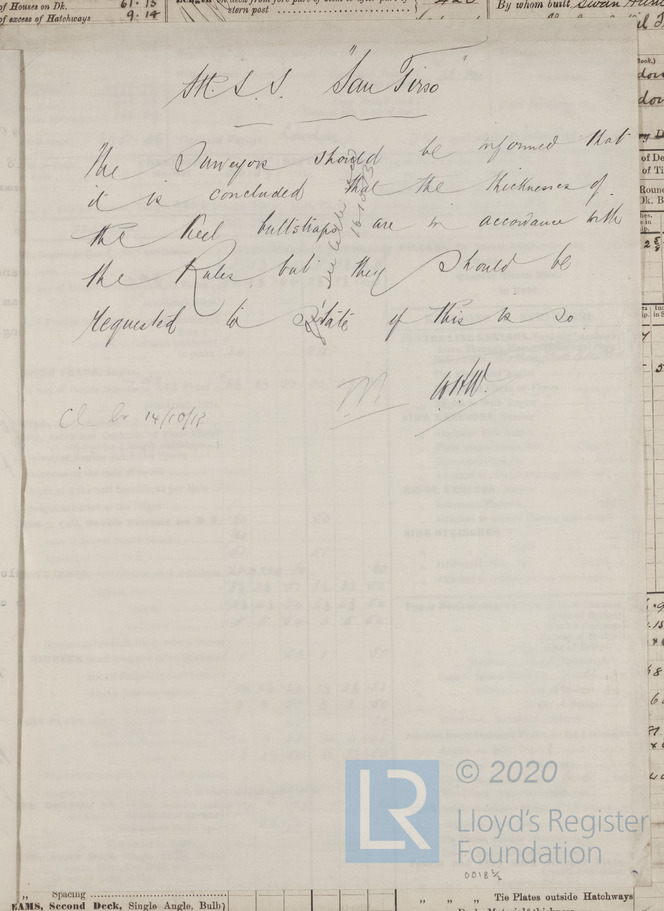 of Houses on Dk. 61.15
of excess of Hatchways 9.14
stern post
By whom built Swan Hunt
St. S. S. "San Tirso"
The Surveyors should be informed that
it is concluded that the thicknesses of
the keel buttstraps are in accordance with
the Rules, but they should be
requested to state if this is so
See letter
16/10/13
W.H.W.
14/10/13
© 2020
LR
Lloyd's Register
Foundation
0018½
Spacing
EAMS, Second Deck, Single Angle, Bulb)
" " " Tie Plates outside Hatchways